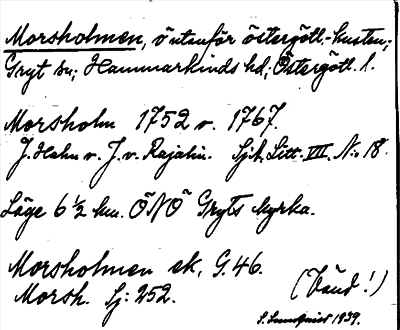 Morsholmen, ö utanför östergötl.-kusten,-
Gryt sn; Hammarkinds hd; Östergötl. l.
Morsholm 1752 v. 1767.
J. Hahn v. J. v. Rajalin. Sjk. Litt. VIII. No 18.
Läge 6 1/2 km. ÖNÖ Gryts kyrka.
Morsholmen ek. G. 46.
Morsh. Sj: 252.
(Vänd!)
S. Lundqvist 1939.